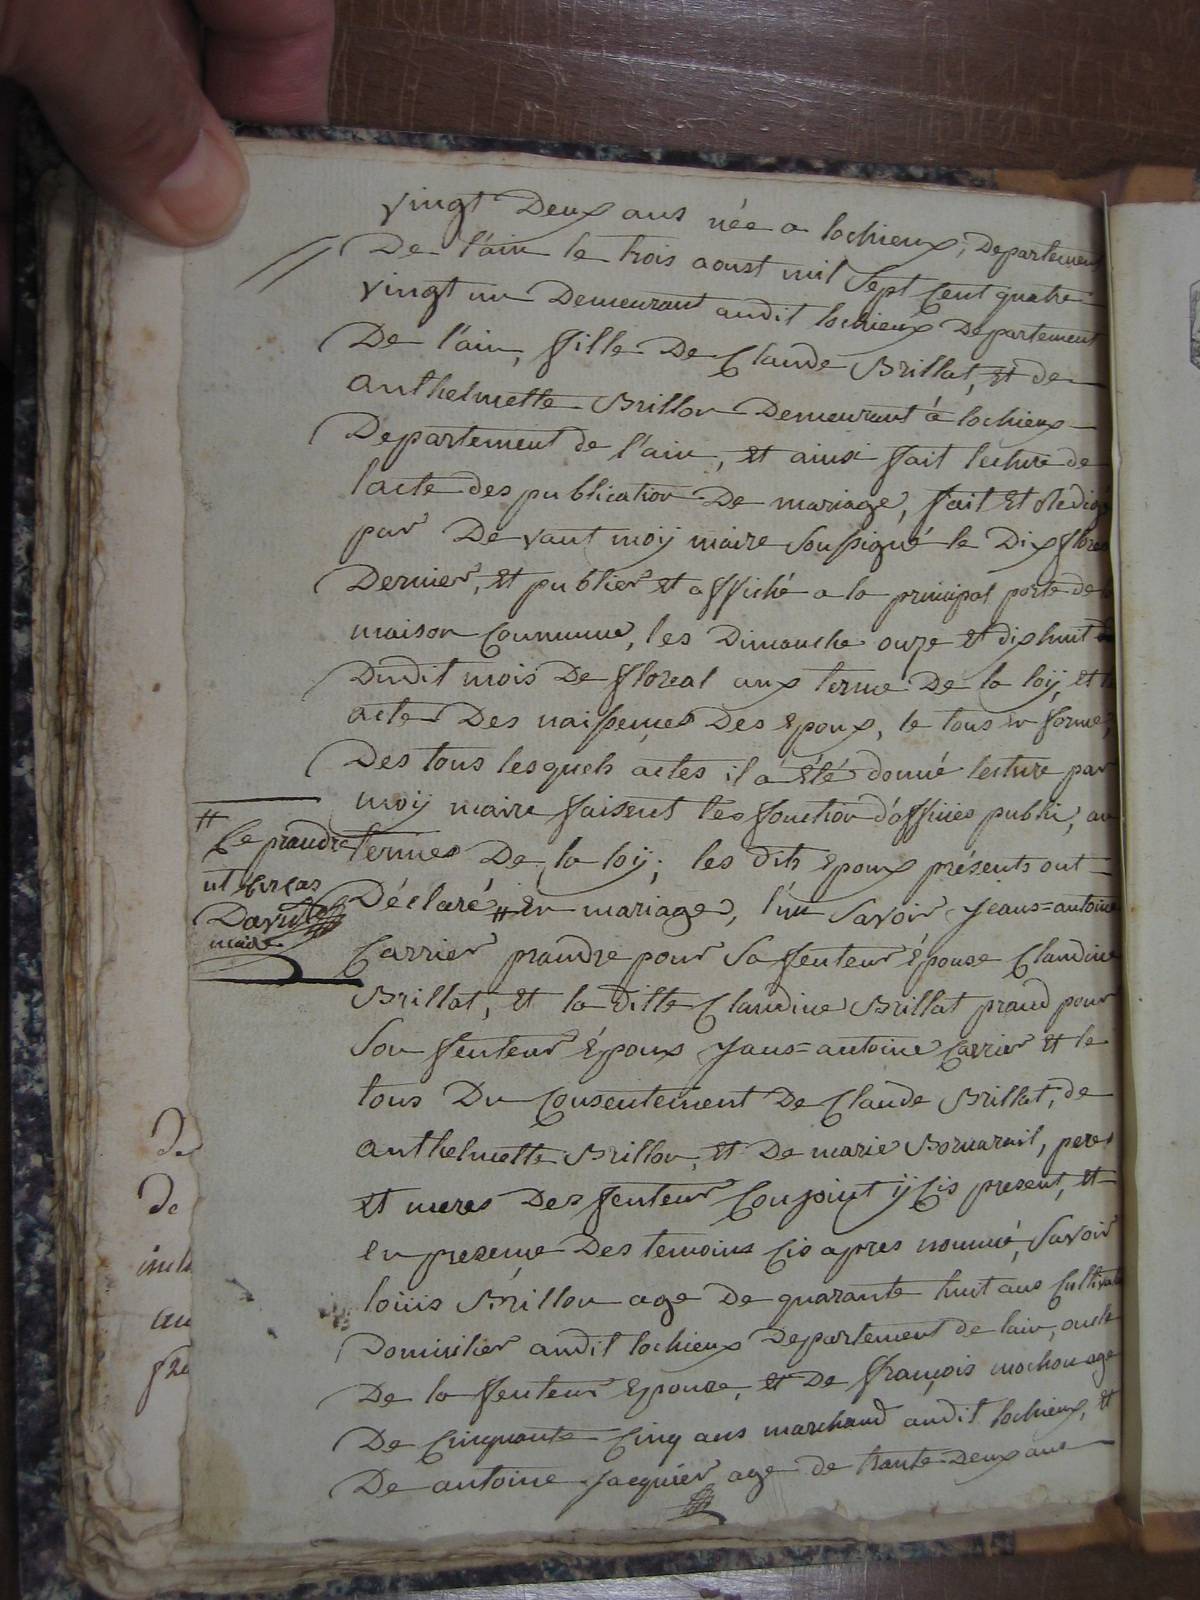 vingt Deux ans née a lochieux, Departement
De l'ain le trois aoust mil Sept Cent quatre
vingt un Demeurant audit lochieux Departement
De l'ain, fille De Claude Brillat, et de
anthelmette Brillon Demeurant à lochieux
Departement de l'ain, et ainsi fait lecture de
l'acte des publication De mariage, fait et Redigé
par Devant moÿ maire Soussigné le Dix
Dernier, et publier et affiché a la principal porte de
maison Commune, les Dimanche onze et dix huit
Dudit mois De floreal aux terme De la loÿ, et
acter Des naissences Des Epoux, le tous en forme,
Des tous lesquels actes il a été donné lecture par
moÿ maire faisent les fonction d'officier public, au
termes De la loÿ, les dits Epoux présents ont
Déclaré # En mariage, l'un Savoir Jeans=antoine
Carrier prandre pour Sa fenteur Épouse Claudine
Brillat, et la ditte Claudine Brillat prand pour
Son fenteur Époux Jans=antoine Carrier et le
tous Du Consentement De Claude Brillat, de
anthelmette Brillon, et De marie peres
et meres Des fenteur Conjoint ÿ Cis present, et
En presence Des temoins Cis apres nommé, Savoir
louis Brillon age De quarante huit ans Cultivateur
Domicilier audit lochieux Departement de lain, oncle
De la fenteur Epouse, et De françois mochon age
De Cinquante Cinq ans marchand audit lochieux, et
De antoine Jacquier age de trante Deux ans
#
Ce prandre
David
maire
De
de